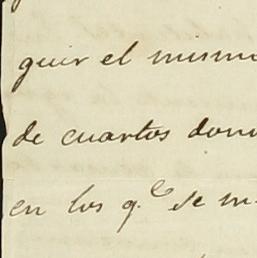 guir el mismo
de cuartos don
en los q.e se m